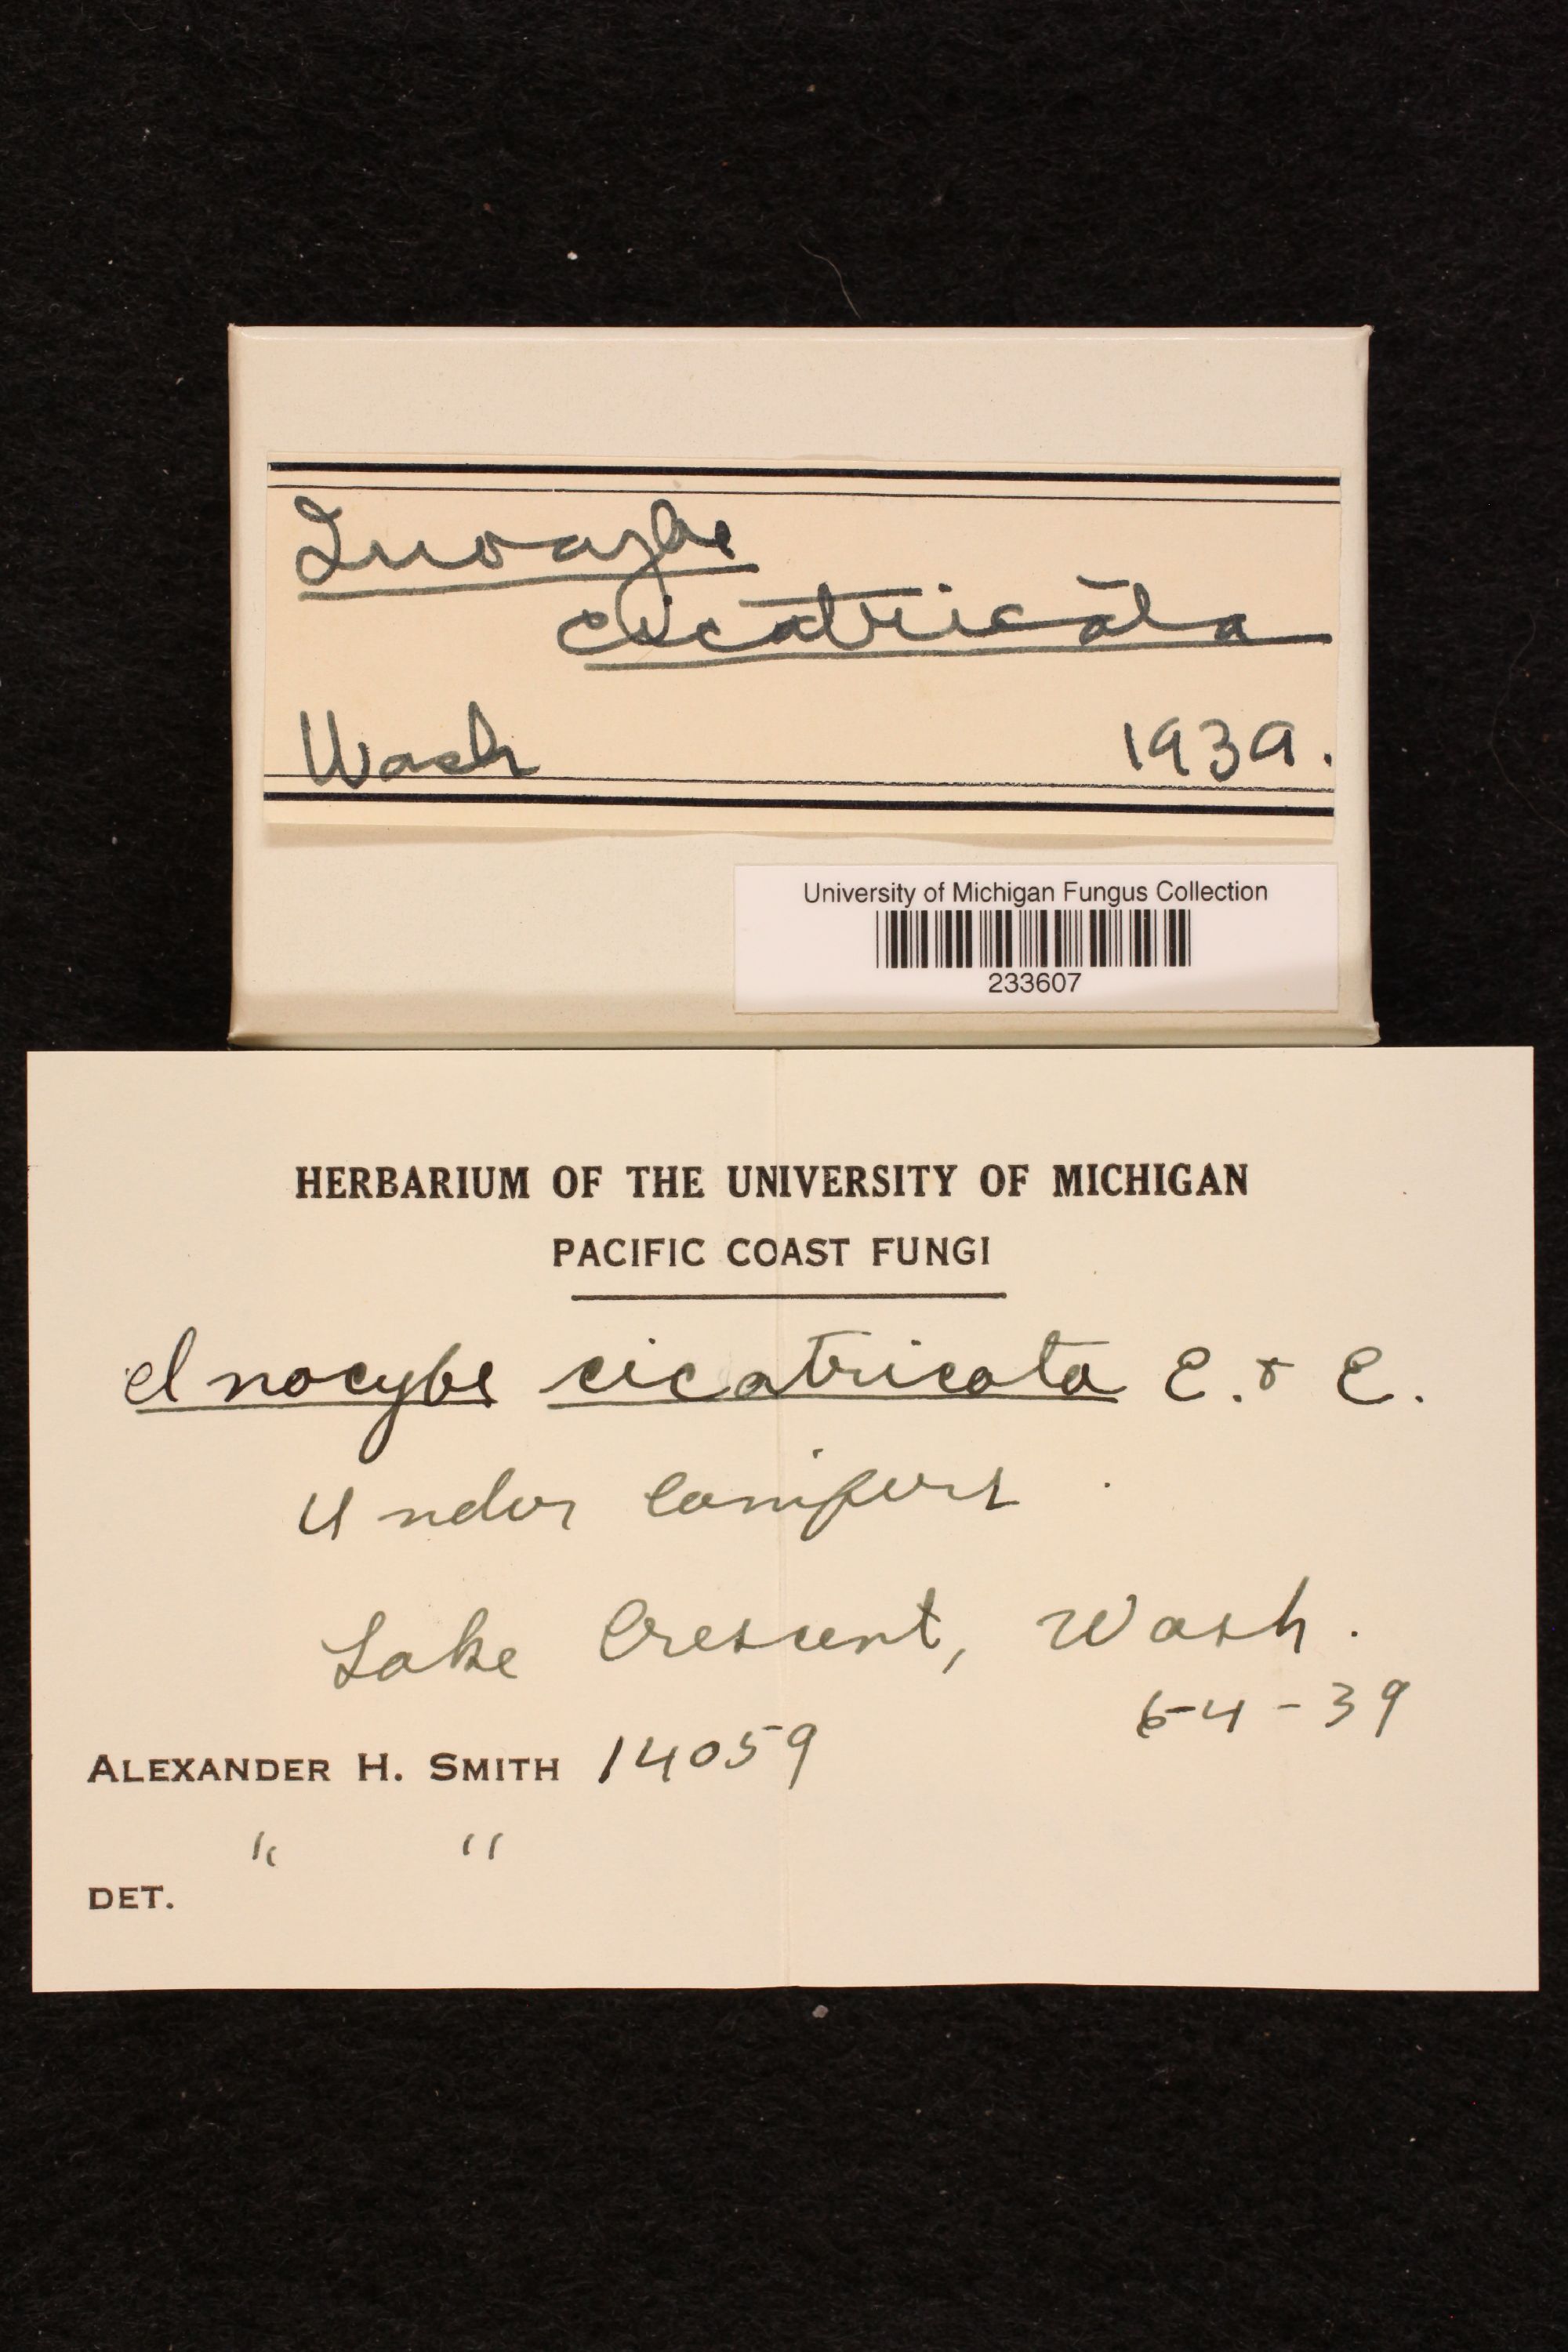 Inocybe
cicatricata
Wash 1939.
University of Michigan Fungus Collection
233607
HERBARIUM OF THE UNIVERSITY OF MICHIGAN
PACIFIC COAST FUNGI
Inocybe cicatricata E. & E.
Under conifers.
Lake Crescent, Wash.
6-4-39
ALEXANDER H. SMITH 14059
" "
DET.